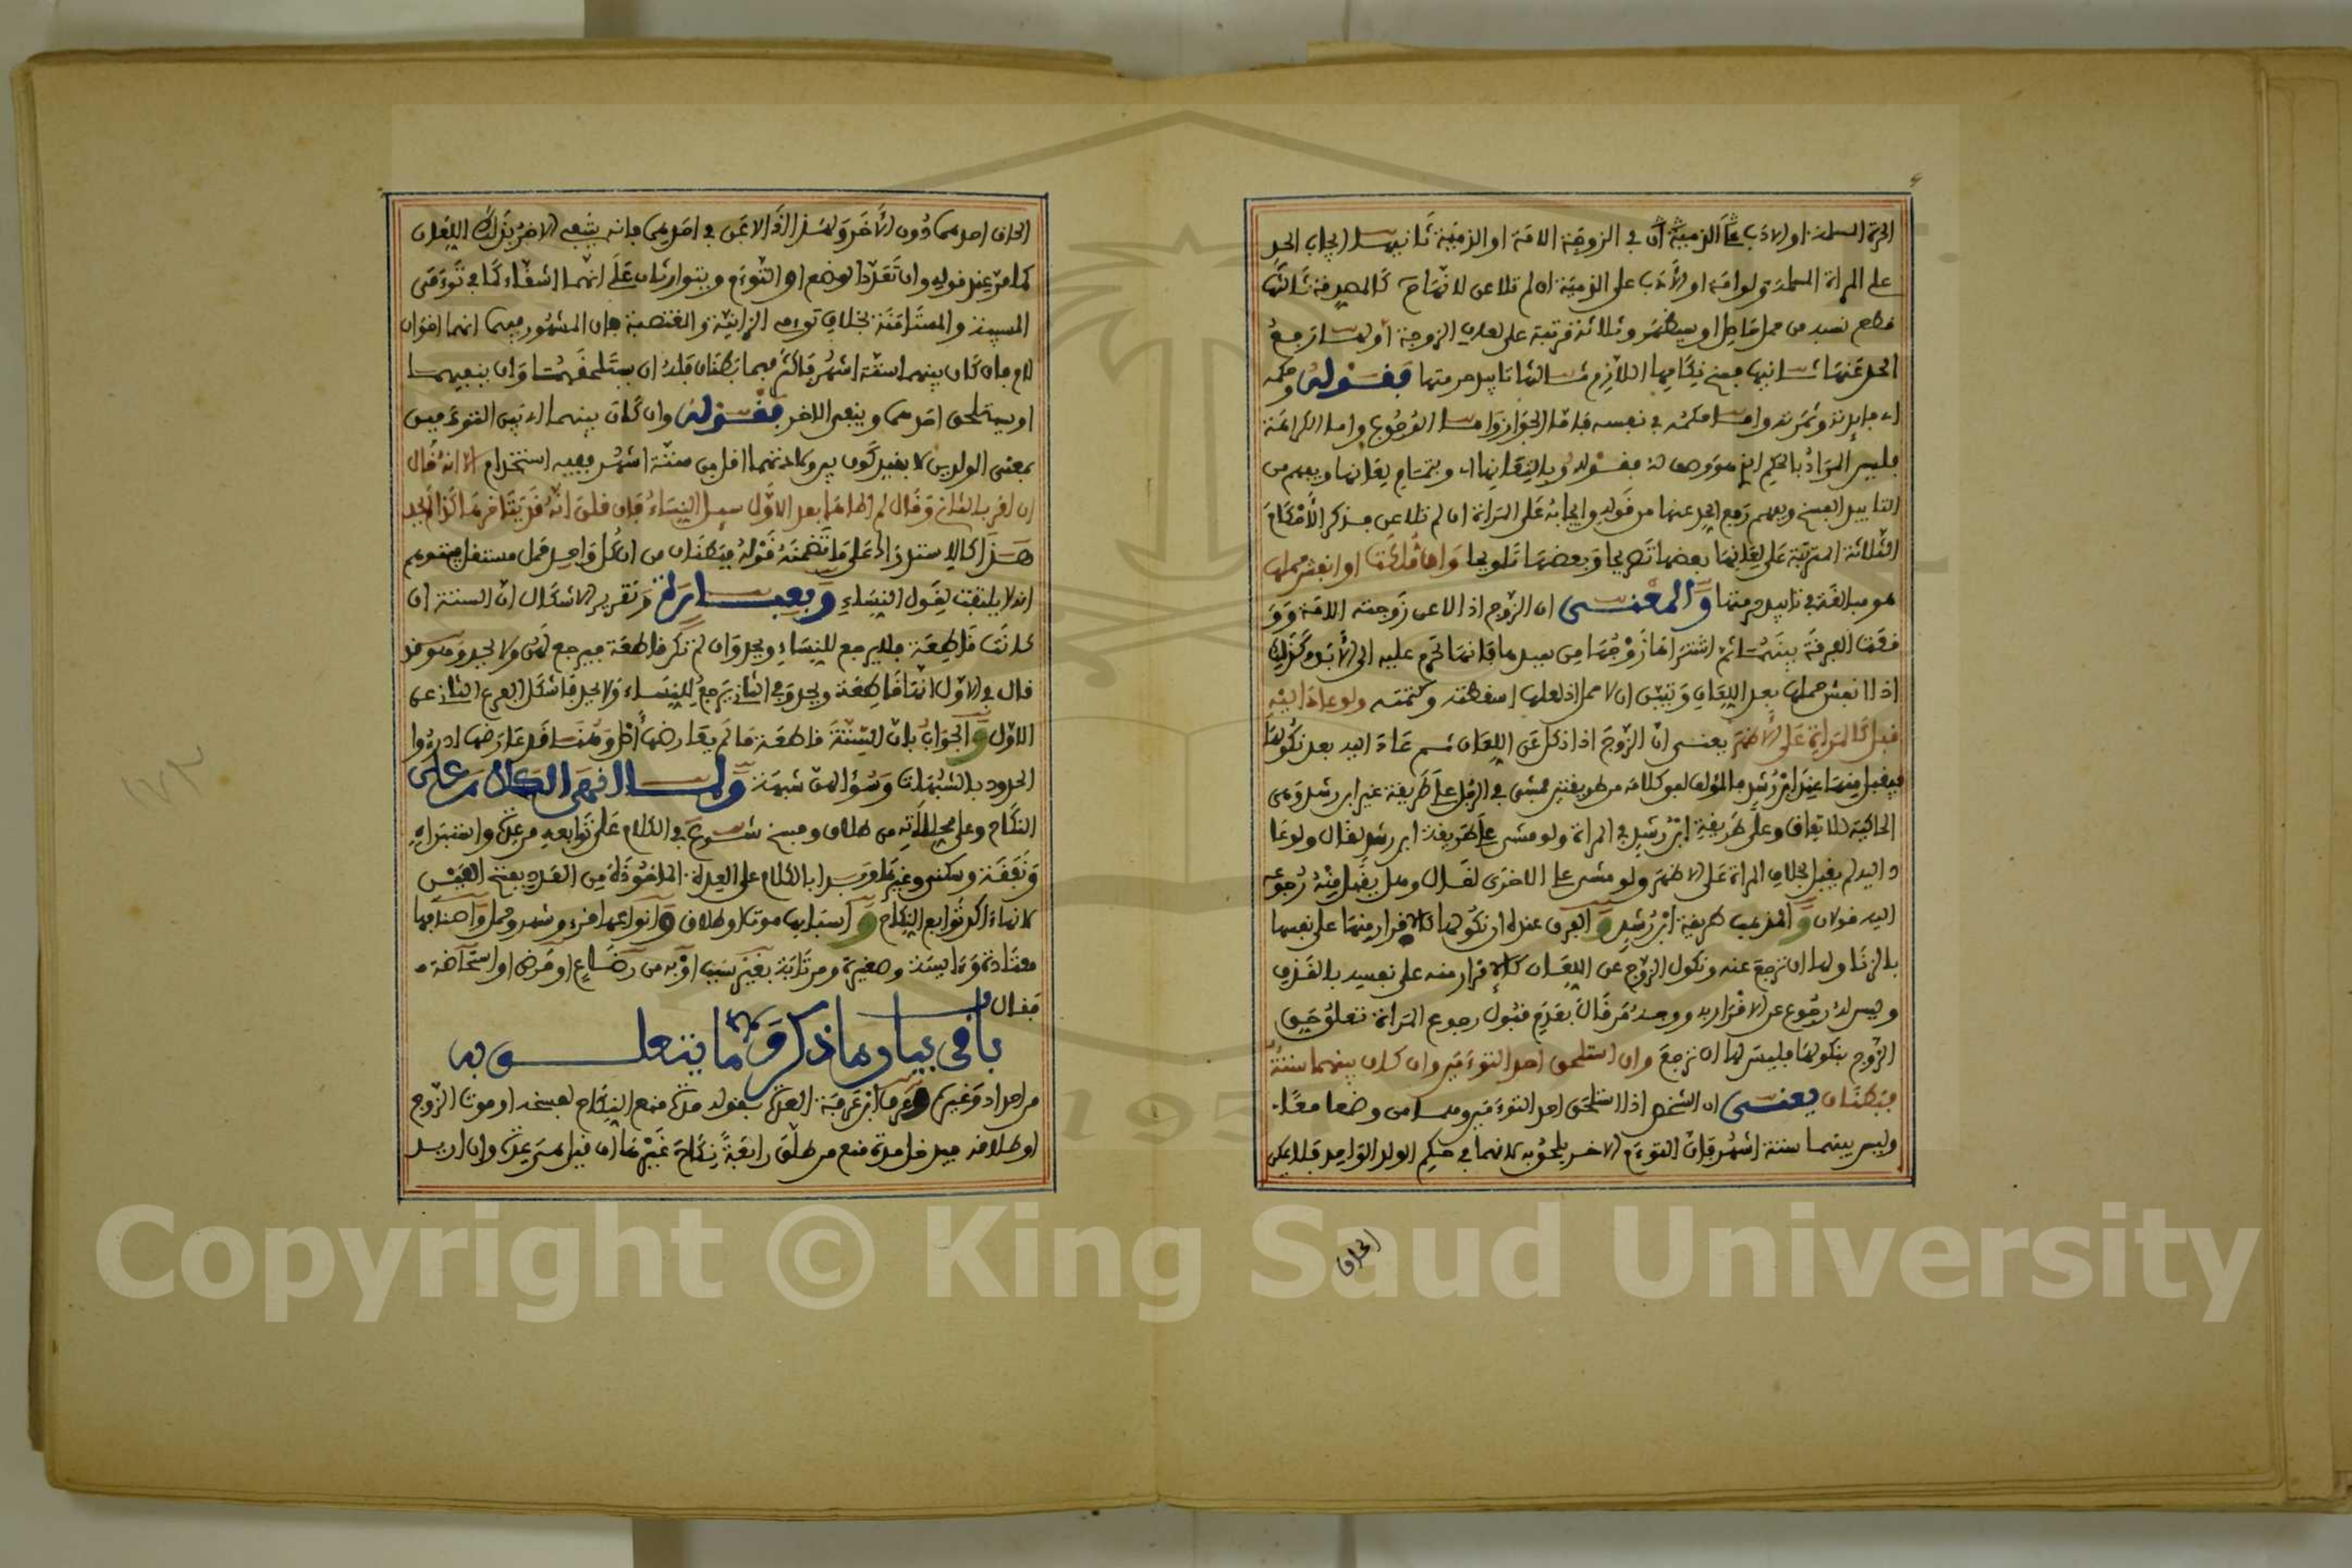 الحرة المسلمة او الادب في الزوجة الامة او الذمية ثانيها ايجاب الحد
على المراة المسلمة ولو امة او الادب على الذمية ان لم تلاعن لا نكاح كالمصدقة ثالثها
قطع نسبه من حمل حاصل او سيظهر وثلاثة مرتبة على لعان الزوجة اولها رفع
الحد عنها ثانيها فسخ نكاحها اللازم ثالثها تابيد حرمتها فقوله وحكمه
فليس المراد بالحكم الذي هو وصف له فقوله وبالتعانها اي وبتمام لعانها ويفهم من
التابيد الفسخ ويفهم رفع الحد عنها من قوله وايجابه على المراة ان لم تلاعن فذكر الاحكام
الثلاثة المترتبة على لعانها بعضها تصريحا وبعضها تلويحا وان ملكت او انفش حملها
هو مبالغة في تابيد حرمتها والمعنى ان الزوج اذا لاعن زوجته الامة وو
قعت الفرقة بينهما ثم اشتراها زوجها من سيدها فانها تحرم عليه الى الابد وكذلك
اذا انفش حملها بعد اللعان وتبين ان لا حمل اذ لعلها اسقطته وكتمته ولو عاد اليه
قبل كالمراة على الاظهر يعنى ان الزوج اذا نكل عن اللعان ثم عاد اليه بعد نكولها
فيقبل منهما عند ابن رشد فالمؤلف لفق كلامه من طريقتين فمشى في الرجل على طريقة غير ابن رشد وهي
الحاكية للاتفاق وعلى طريقة ابن رشد في المراة ولو مشى على طريقة ابن رشد لقال ولو عا
د اليه لم يقبل بخلاف المراة على الاظهر ولو مشى على الاخرى لقال وهل يقبل منه رجوعه
اليه قولان والمذهب طريقة ابن رشد والفرق عنده ان نكولها كالاقرار منها على نفسها
بالزنا ولها ان ترجع عنه ونكول الزوج عن اللعان كالاقرار منه على نفسه بالقذف
وليس له رجوع عن الاقرار به ووجه من قال بعدم قبول رجوع المراة تعلق حق
الزوج بنكولها فليس لها ان ترجع وان استلحق احد التوءمين وان كان بينهما ستة
فبطنان يعنى ان الشخص اذا استلحق احد التوءمين وهما من وضعا معا
وليس بينهما ستة اشهر فان التوءم الاخر يلحق به لانهما في حكم الولد الواحد فلا يمكن
الحاق
الحاق احدهما دون الاخر وكذا اذا لاعن في احدهما فانه ينتفي الاخر بذلك اللعان
كما مر عند قوله وان تعدد الوضع او التوءم ويتوارثان على انهما اشقاء كما في توءمى
المسبية والمستامنة بخلاف توءمى الزانية والمغتصبة فان المشهور فيهما انهما اخوان
لام فان كان بينهما ستة اشهر فاكثر فهما بطنان فله ان يستلحقهما وان ينفيهما
او يستلحق احدهما وينفي الاخر فقوله وان كان بينهما اي بين التوءمين
بمعنى الولدين لا بقيد كون بين ولادتهما اقل من ستة اشهر ففيه استخدام الا انه قال
ان اقر بالثاني وقال لم اطاها بعد الاول سيل النساء فان قلن انه قد يتاخر هكذا لم يحد
هذا كالاستدراك على ما تضمنه قوله فبطنان من ان كل واحد حمل مستقل فيتوهم
انه لا يلتفت لقول النساء وبعبارة وتقرير الاشكال ان الستة ان
كانت قاطعة فلا يرجع للنساء ويحد وان لم تكن قاطعة فيرجع لهن ولا يحد وهو قد
قال في الاول انها قاطعة ويحد وفي الثاني يرجع للنساء ولا يحد فاشكل الفرع الثاني على
الاول والجواب بان الستة قاطعة ما لم يعارضها اصل وهنا قد عارضها ادرءوا
الحدود بالشبهات وسؤالهن شبهة ولما انهى الكلام على
النكاح وعلى محللاته من طلاق وفسخ شرع في الكلام على توابعه من عدة واستبراء
ونفقة وسكنى وغيرها وبدا بالكلام على العدة الماخوذة من العدد بفتح العين
لانها اكد توابع النكاح واسبابها موت او طلاق وانواعها قرء وشهر وحمل واصنافها
معتادة وءايسة وصغيرة ومرتابة بغير سبب او به من رضاع او مرض او استحاضة
فقال
باب في بيان ما ذكر وما يتعلق به
من احداد وغيره وعرف ابن عرفة العدة بقوله مدة منع النكاح لفسخه او موت الزوج
او طلاقه فيدخل مدة منع من طلق رابعة نكاح غيرها ان قيل هى عدة وان اريد
Copyright © King Saud University
1957